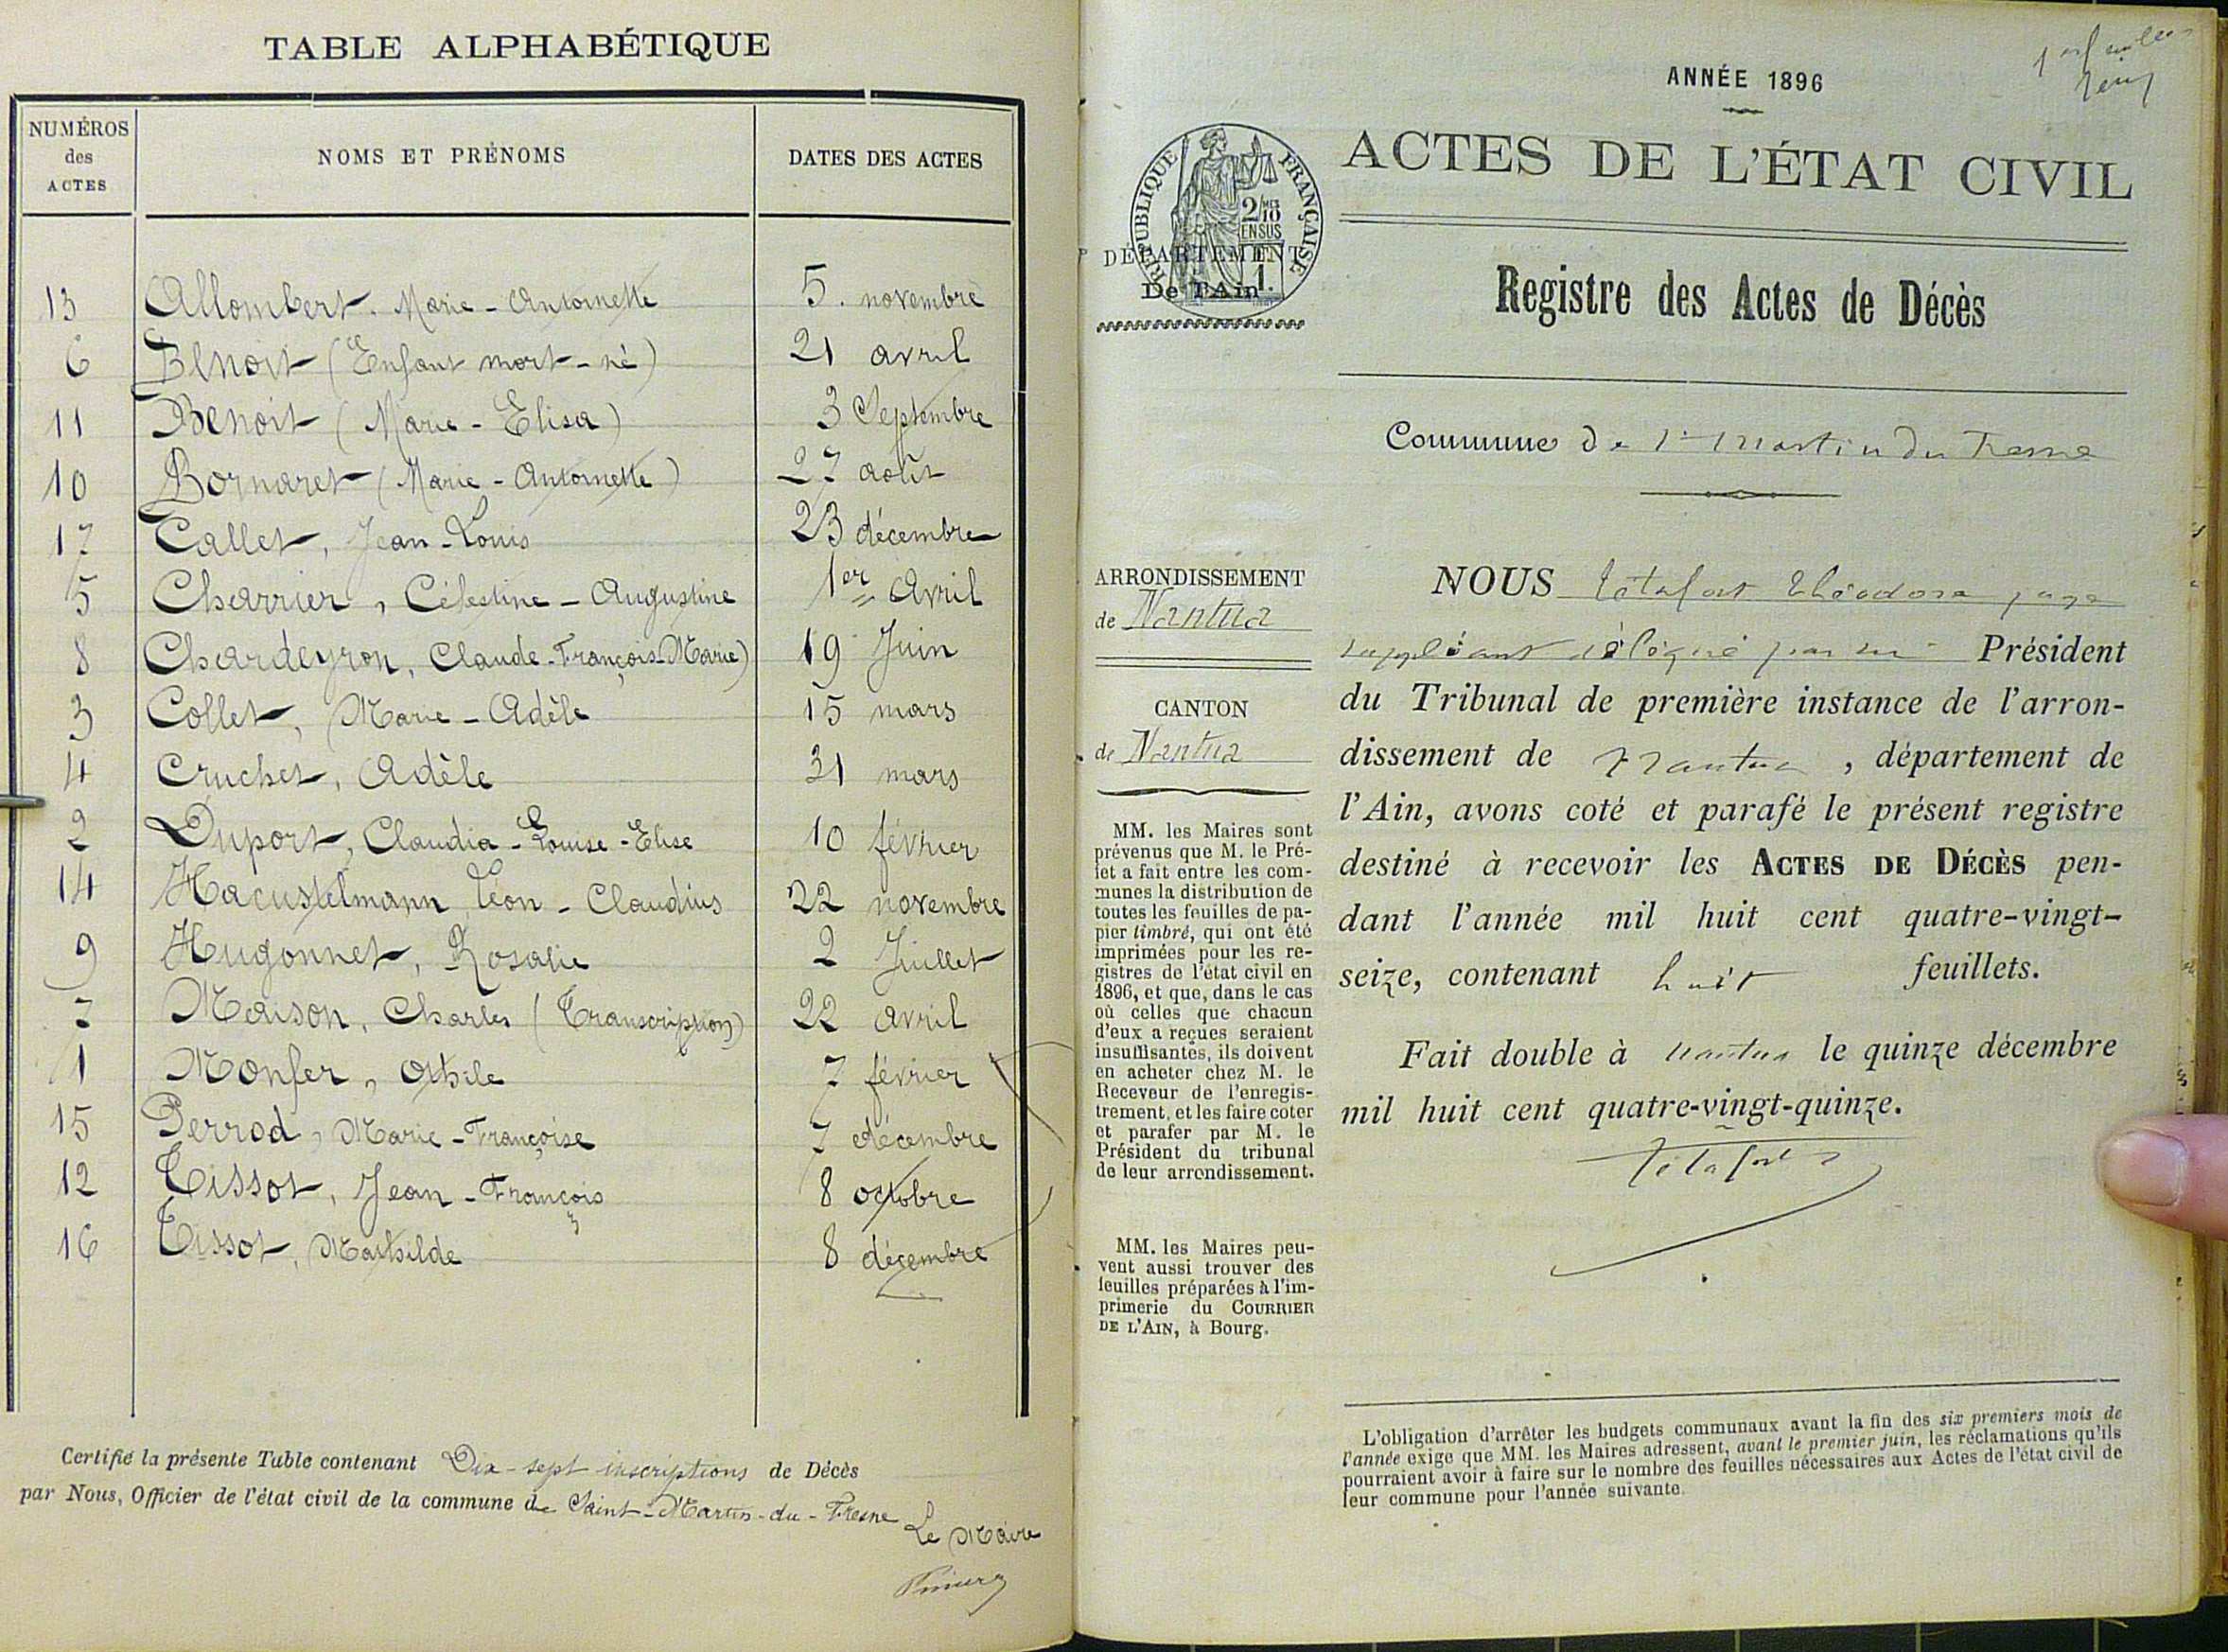 TABLE ALPHABÉTIQUE
NUMÉROS des ACTES
NOMS ET PRÉNOMS
DATES DES ACTES
13 Allombert. Marie-Antoinette 5. novembre
6 Benoit (Enfant mort-né) 21 avril
11 Benoit (Marie-Elisa) 3 Septembre
10 Bornaret (Marie-Antoinette) 27 août
17 Callet, Jean-Louis 23 décembre
5 Charrier, Célestine-Augustine 1er Avril
8 Chardeyron, Claude-François-Marie) 19 Juin
3 Collet, Marie-Adèle 15 mars
4 Cruchet, Adèle 31 mars
2 Duport, Claudia-Louise-Elise 10 février
14 Hacustelmann Léon-Claudius 22 novembre
9 Hugonnet, Rosalie 2 Juillet
7 Maison, Charles (Transcription) 22 avril
1 Monfer, Othile 7 février
15 Perrod, Marie-Françoise 7 décembre
12 Tissot, Jean-François 8 octobre
16 Tissot, Mathilde 8 décembre
Certifié la présente Table contenant Dix-sept inscriptions de Décès
par Nous, Officier de l'état civil de la commune de Saint-Martin-du-Fresne
Le Maire
ANNÉE 1896
RÉPUBLIQUE FRANÇAISE
2/10 EN SUS
1.
ACTES DE L'ÉTAT CIVIL
DÉPARTEMENT
De l'Ain
Registre des Actes de Décès
Commune de St Martin du Fresne
ARRONDISSEMENT
de Nantua
CANTON
de Nantua
MM. les Maires sont
prévenus que M. le Pré-
fet a fait entre les com-
munes la distribution de
toutes les feuilles de pa-
pier timbré, qui ont été
imprimées pour les re-
gistres de l'état civil en
1896, et que, dans le cas
où celles que chacun
d'eux a reçues seraient
insuffisantes, ils doivent
en acheter chez M. le
Receveur de l'enregis-
trement, et les faire coter
et parafer par M. le
Président du tribunal
de leur arrondissement.
MM. les Maires peu-
vent aussi trouver des
feuilles préparées à l'im-
primerie du COURRIER
DE L'AIN, à Bourg.
NOUS Tétafort Théodore juge
suppléant délégué par Mr Président
du Tribunal de première instance de l'arron-
dissement de Nantua, département de
l'Ain, avons coté et parafé le présent registre
destiné à recevoir les ACTES DE DÉCÈS pen-
dant l'année mil huit cent quatre-vingt-
seize, contenant huit feuillets.
Fait double à Nantua le quinze décembre
mil huit cent quatre-vingt-quinze.
Tétafort
L'obligation d'arrêter les budgets communaux avant la fin des six premiers mois de
l'année exige que MM. les Maires adressent, avant le premier juin, les réclamations qu'ils
pourraient avoir à faire sur le nombre des feuilles nécessaires aux Actes de l'état civil de
leur commune pour l'année suivante.